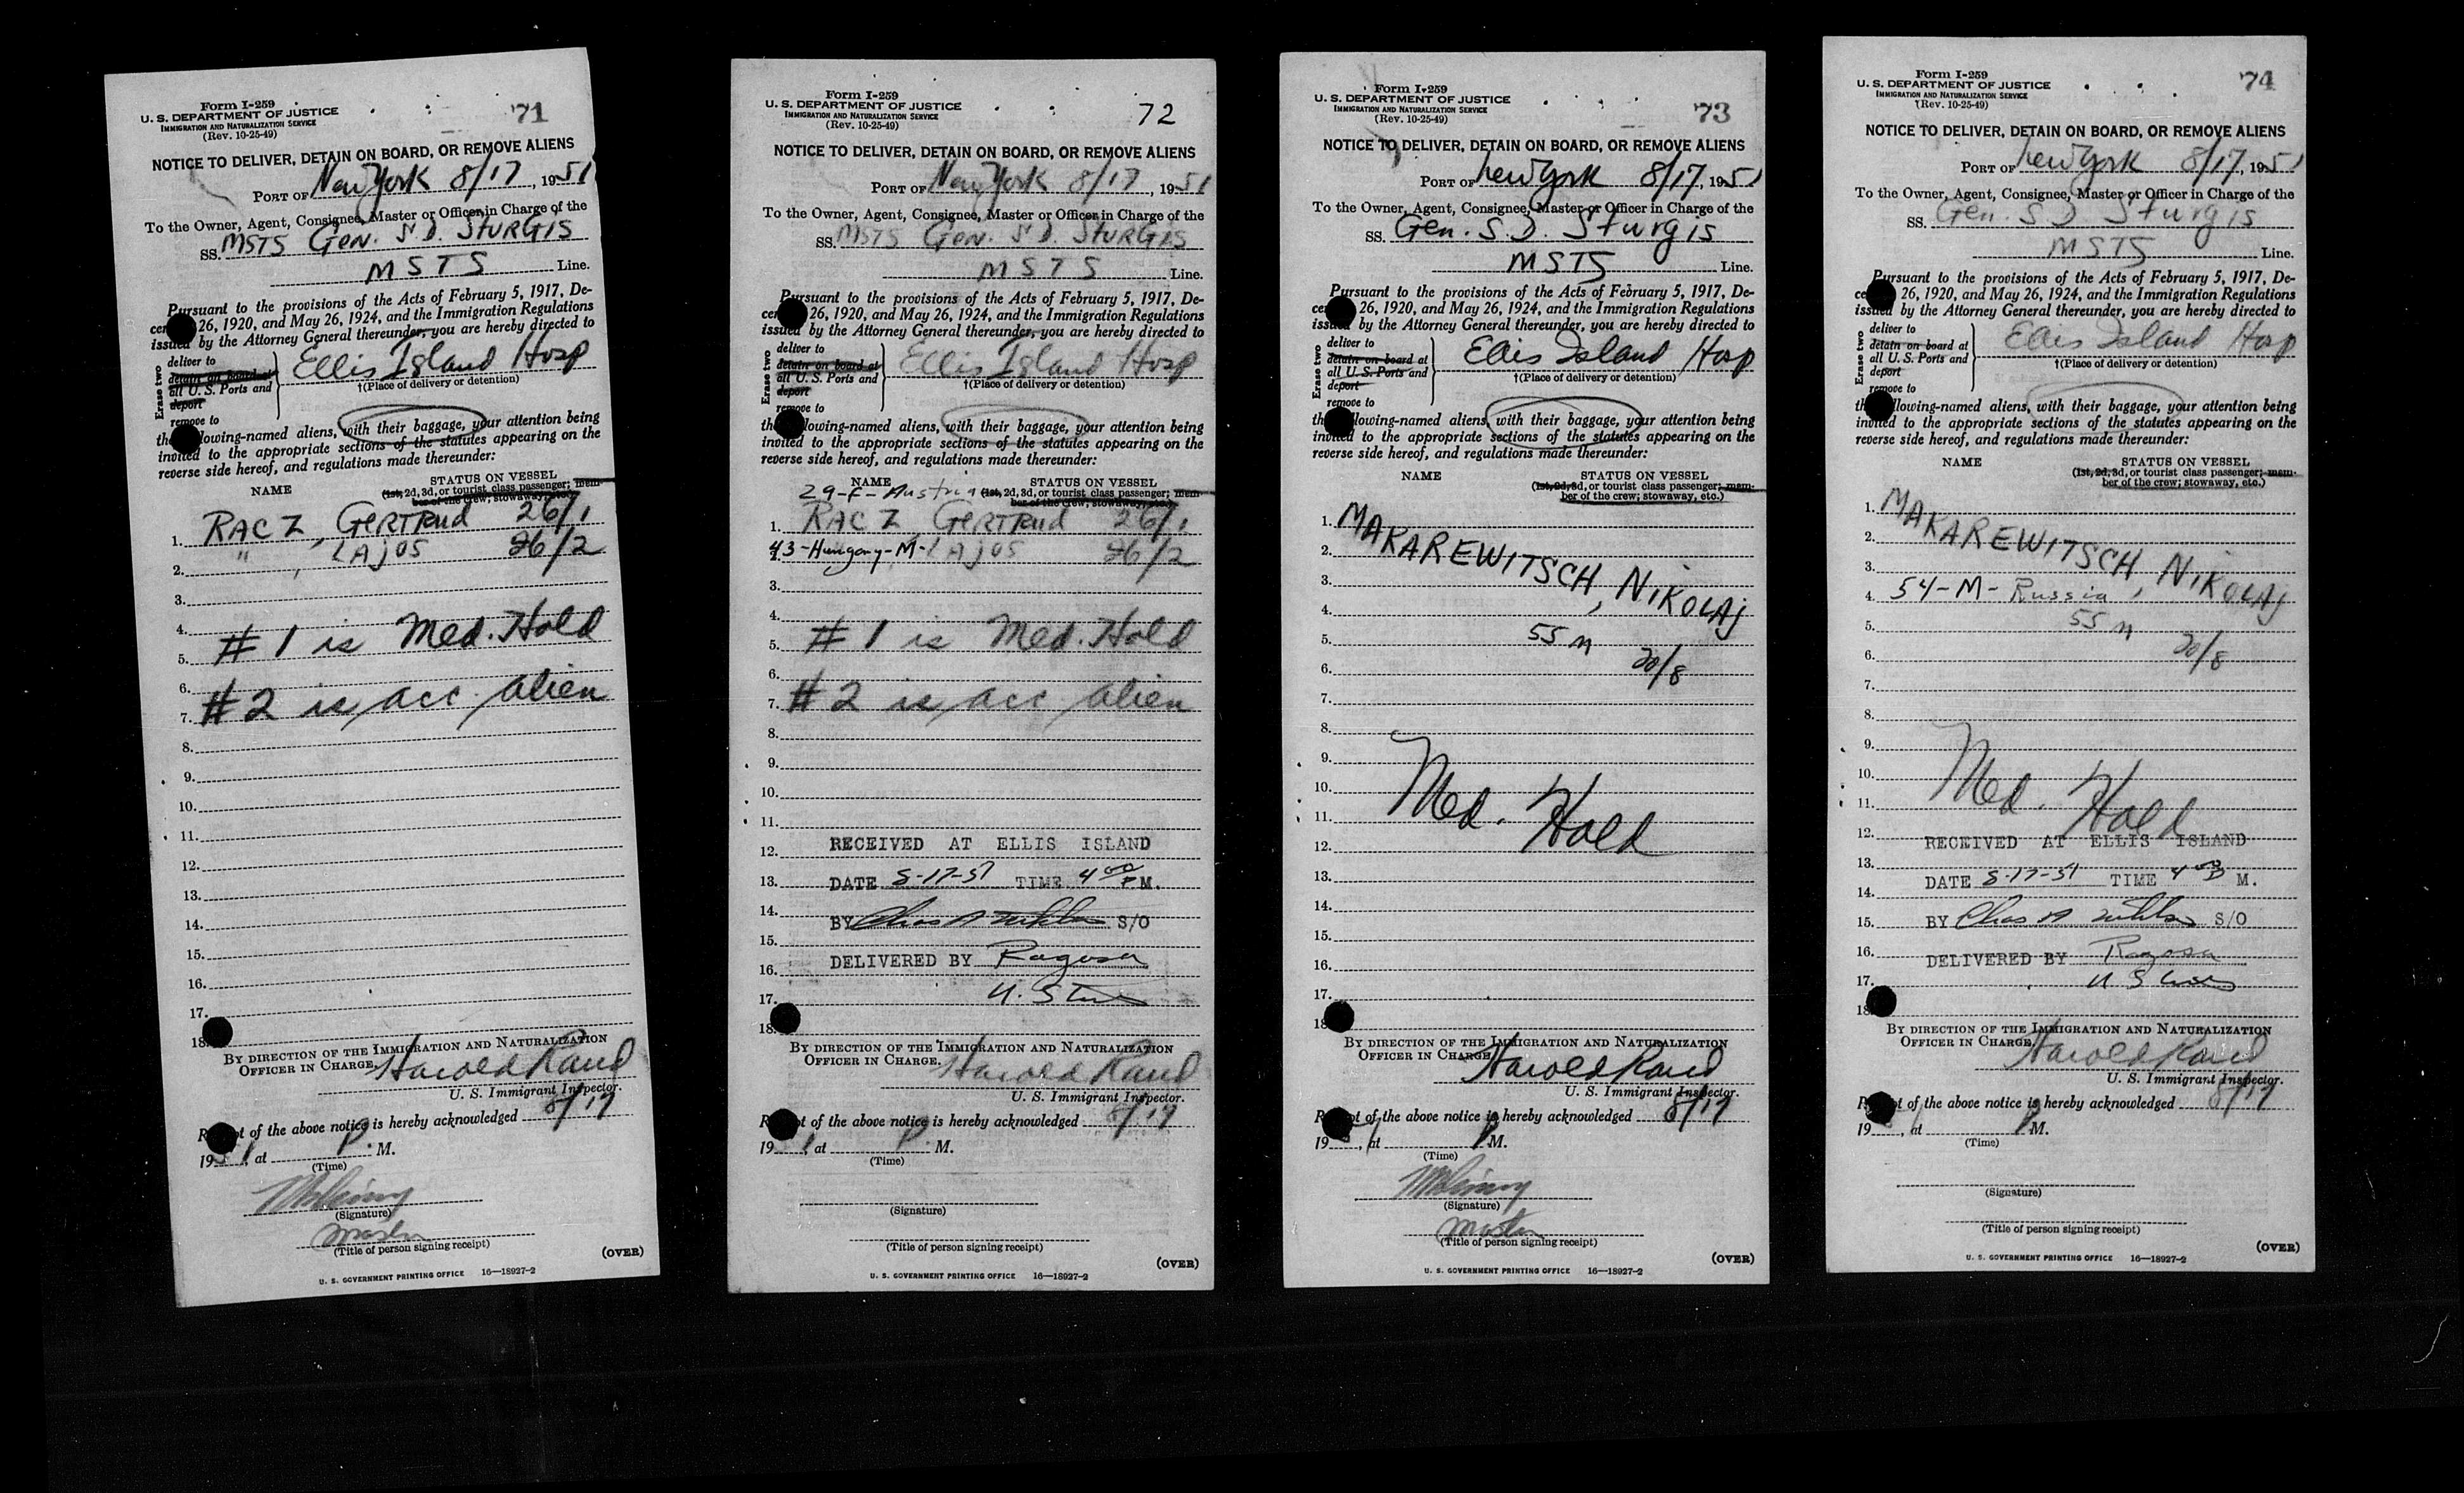 Form I-259
U. S. DEPARTMENT OF JUSTICE
IMMIGRATION AND NATURALIZATION SERVICE
(Rev. 10-25-49)
71
NOTICE TO DELIVER, DETAIN ON BOARD, OR REMOVE ALIENS
PORT OF New York 8/17, 1951
To the Owner, Agent, Consignee, Master or Officer in Charge of the
SS. MSTS Gen. S D. STURGIS
MSTS Line.
Pursuant to the provisions of the Acts of February 5, 1917, De-
cem 26, 1920, and May 26, 1924, and the Immigration Regulations
issued by the Attorney General thereunder, you are hereby directed to
Erase two
deliver to
detain on board at
all U. S. Ports and
deport
remove to
Ellis Island Hosp
†(Place of delivery or detention)
th lowing-named aliens, with their baggage, your attention being
invited to the appropriate sections of the statutes appearing on the
reverse side hereof, and regulations made thereunder:
NAME STATUS ON VESSEL
(1st, 2d, 3d, or tourist class passenger; mem-
ber of the crew; stowaway, etc.)
1. RACZ, GERTRUD 26/1
2. " , LAJOS 26/2
3.
4.
5. # 1 is Med. Hold
6.
7. # 2 is acc alien
8.
9.
10.
11.
12.
13.
14.
15.
16.
17.
18.
BY DIRECTION OF THE IMMIGRATION AND NATURALIZATION
OFFICER IN CHARGE, Harold Rand
U. S. Immigrant Inspector.
R t of the above notice is hereby acknowledged 8/17
1951, at P M.
(Time)
(Signature)
Master
(Title of person signing receipt)
(OVER)
U. S. GOVERNMENT PRINTING OFFICE 16—18927-2
Form I-259
U. S. DEPARTMENT OF JUSTICE
IMMIGRATION AND NATURALIZATION SERVICE
(Rev. 10-25-49)
72
NOTICE TO DELIVER, DETAIN ON BOARD, OR REMOVE ALIENS
PORT OF New York 8/17, 1951
To the Owner, Agent, Consignee, Master or Officer in Charge of the
SS. MSTS Gen. S D. STURGIS
MSTS Line.
Pursuant to the provisions of the Acts of February 5, 1917, De-
cem 26, 1920, and May 26, 1924, and the Immigration Regulations
issued by the Attorney General thereunder, you are hereby directed to
Erase two
deliver to
detain on board at
all U. S. Ports and
deport
remove to
Ellis Island Hosp
†(Place of delivery or detention)
th lowing-named aliens, with their baggage, your attention being
invited to the appropriate sections of the statutes appearing on the
reverse side hereof, and regulations made thereunder:
NAME STATUS ON VESSEL
29-F-Austria (1st, 2d, 3d, or tourist class passenger; mem-
ber of the crew; stowaway, etc.)
1. RACZ GERTRUD 26/1
43-Hungary-M- LAJOS 26/2
3.
4.
5. # 1 is Med. Hold
6.
7. # 2 is acc alien
8.
9.
10.
11.
12. RECEIVED AT ELLIS ISLAND
13. DATE 8-17-51 TIME 4 00 P M.
14.
BY Chas A S/O
15.
16. DELIVERED BY Ragosa
17.
18.
BY DIRECTION OF THE IMMIGRATION AND NATURALIZATION
OFFICER IN CHARGE, Harold Rand
U. S. Immigrant Inspector.
R t of the above notice is hereby acknowledged 8/17
19 1, at P M.
(Time)
(Signature)
(Title of person signing receipt)
(OVER)
U. S. GOVERNMENT PRINTING OFFICE 16—18927-2
Form I-259
U. S. DEPARTMENT OF JUSTICE
IMMIGRATION AND NATURALIZATION SERVICE
(Rev. 10-25-49)
73
NOTICE TO DELIVER, DETAIN ON BOARD, OR REMOVE ALIENS
PORT OF New York 8/17, 1951
To the Owner, Agent, Consignee, Master or Officer in Charge of the
SS. Gen. S. D. Sturgis
MSTS Line.
Pursuant to the provisions of the Acts of February 5, 1917, De-
cem 26, 1920, and May 26, 1924, and the Immigration Regulations
issued by the Attorney General thereunder, you are hereby directed to
Erase two
deliver to
detain on board at
all U. S. Ports and
deport
remove to
Ellis Island Hosp
†(Place of delivery or detention)
th lowing-named aliens, with their baggage, your attention being
invited to the appropriate sections of the statutes appearing on the
reverse side hereof, and regulations made thereunder:
NAME STATUS ON VESSEL
(1st, 2d, 3d, or tourist class passenger; mem-
ber of the crew; stowaway, etc.)
1. MAKAREWITSCH, NIKOLAJ
2.
3.
4.
5. 55 M
6. 20/8
7.
8.
9.
10.
11. Med. Hold
12.
13.
14.
15.
16.
17.
18
BY DIRECTION OF THE IMMIGRATION AND NATURALIZATION
OFFICER IN CHARGE, Harold Rand
U. S. Immigrant Inspector.
R t of the above notice is hereby acknowledged 8/17
1951, at P M.
(Time)
(Signature)
Master
(Title of person signing receipt)
(OVER)
U. S. GOVERNMENT PRINTING OFFICE 16—18927-2
Form I-259
U. S. DEPARTMENT OF JUSTICE
IMMIGRATION AND NATURALIZATION SERVICE
(Rev. 10-25-49)
74
NOTICE TO DELIVER, DETAIN ON BOARD, OR REMOVE ALIENS
PORT OF New York 8/17, 1951
To the Owner, Agent, Consignee, Master or Officer in Charge of the
SS. Gen. S D. Sturgis
MSTS Line.
Pursuant to the provisions of the Acts of February 5, 1917, De-
ce 26, 1920, and May 26, 1924, and the Immigration Regulations
issued by the Attorney General thereunder, you are hereby directed to
Erase two
deliver to
detain on board at
all U. S. Ports and
deport
remove to
Ellis Island Hosp
†(Place of delivery or detention)
th lowing-named aliens, with their baggage, your attention being
invited to the appropriate sections of the statutes appearing on the
reverse side hereof, and regulations made thereunder:
NAME STATUS ON VESSEL
(1st, 2d, 3d, or tourist class passenger; mem-
ber of the crew; stowaway, etc.)
1. MAKAREWITSCH, NIKOLAJ
2.
3.
4. 54-M-Russia
5. 55 M
6. 20/8
7.
8.
9.
10.
11. Med. Hold
12. RECEIVED AT ELLIS ISLAND
13.
DATE 8-17-51 TIME 4 00 P M.
14.
15. BY Chas A S/O
16.
DELIVERED BY Ragosa
17.
18
BY DIRECTION OF THE IMMIGRATION AND NATURALIZATION
OFFICER IN CHARGE, Harold Rand
U. S. Immigrant Inspector.
R t of the above notice is hereby acknowledged 8/17
19 , at P M.
(Time)
(Signature)
(Title of person signing receipt)
(OVER)
U. S. GOVERNMENT PRINTING OFFICE 16—18927-2